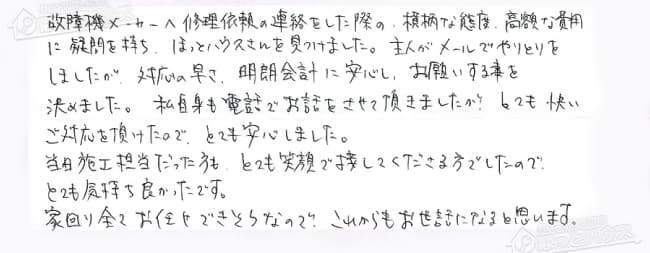 故障機メーカーへ修理依頼の連絡をした際の、横柄な態度、高額な費用
に疑問を持ち、ほっとハウスさんを見つけました。主人がメールでやりとりを
しましたが、対応の早さ、明朗会計に安心し、お願いする事を
決めました。私自身も電話でお話をさせて頂きましたが、とても快い
ご対応を頂けたので、とても安心しました。
当日施工担当だった方も、とても笑顔で接してくださる方でしたので、
とても気持ち良かったです。
家回り全てお任せできそうなので、これからもお世話になると思います。